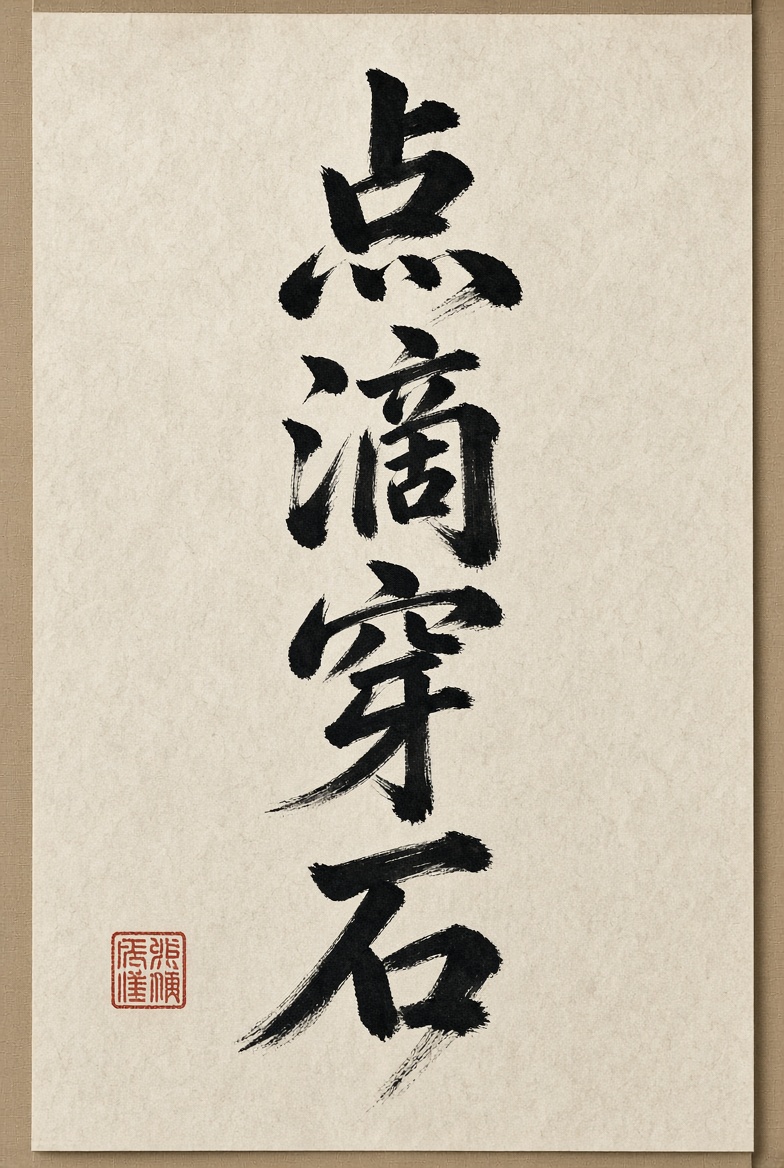 点滴穿石